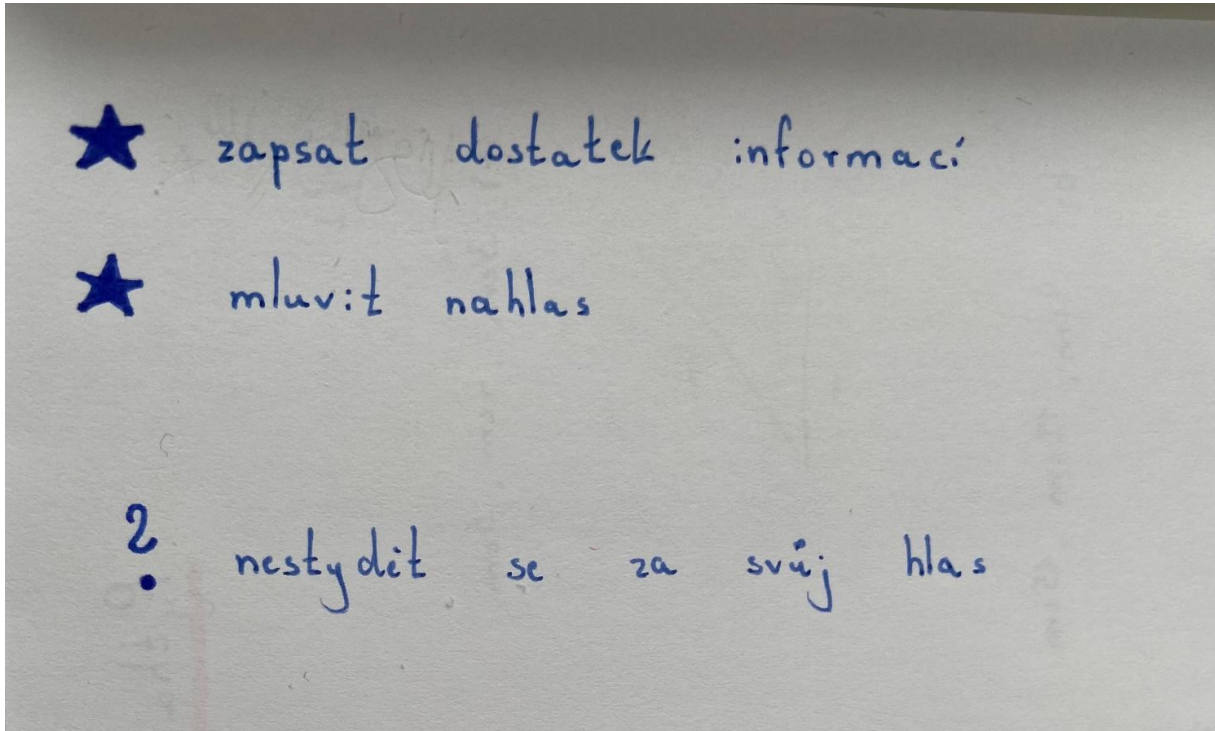 ★ zapsat dostatek informací
★ mluvit nahlas
? nestydět se za svůj hlas